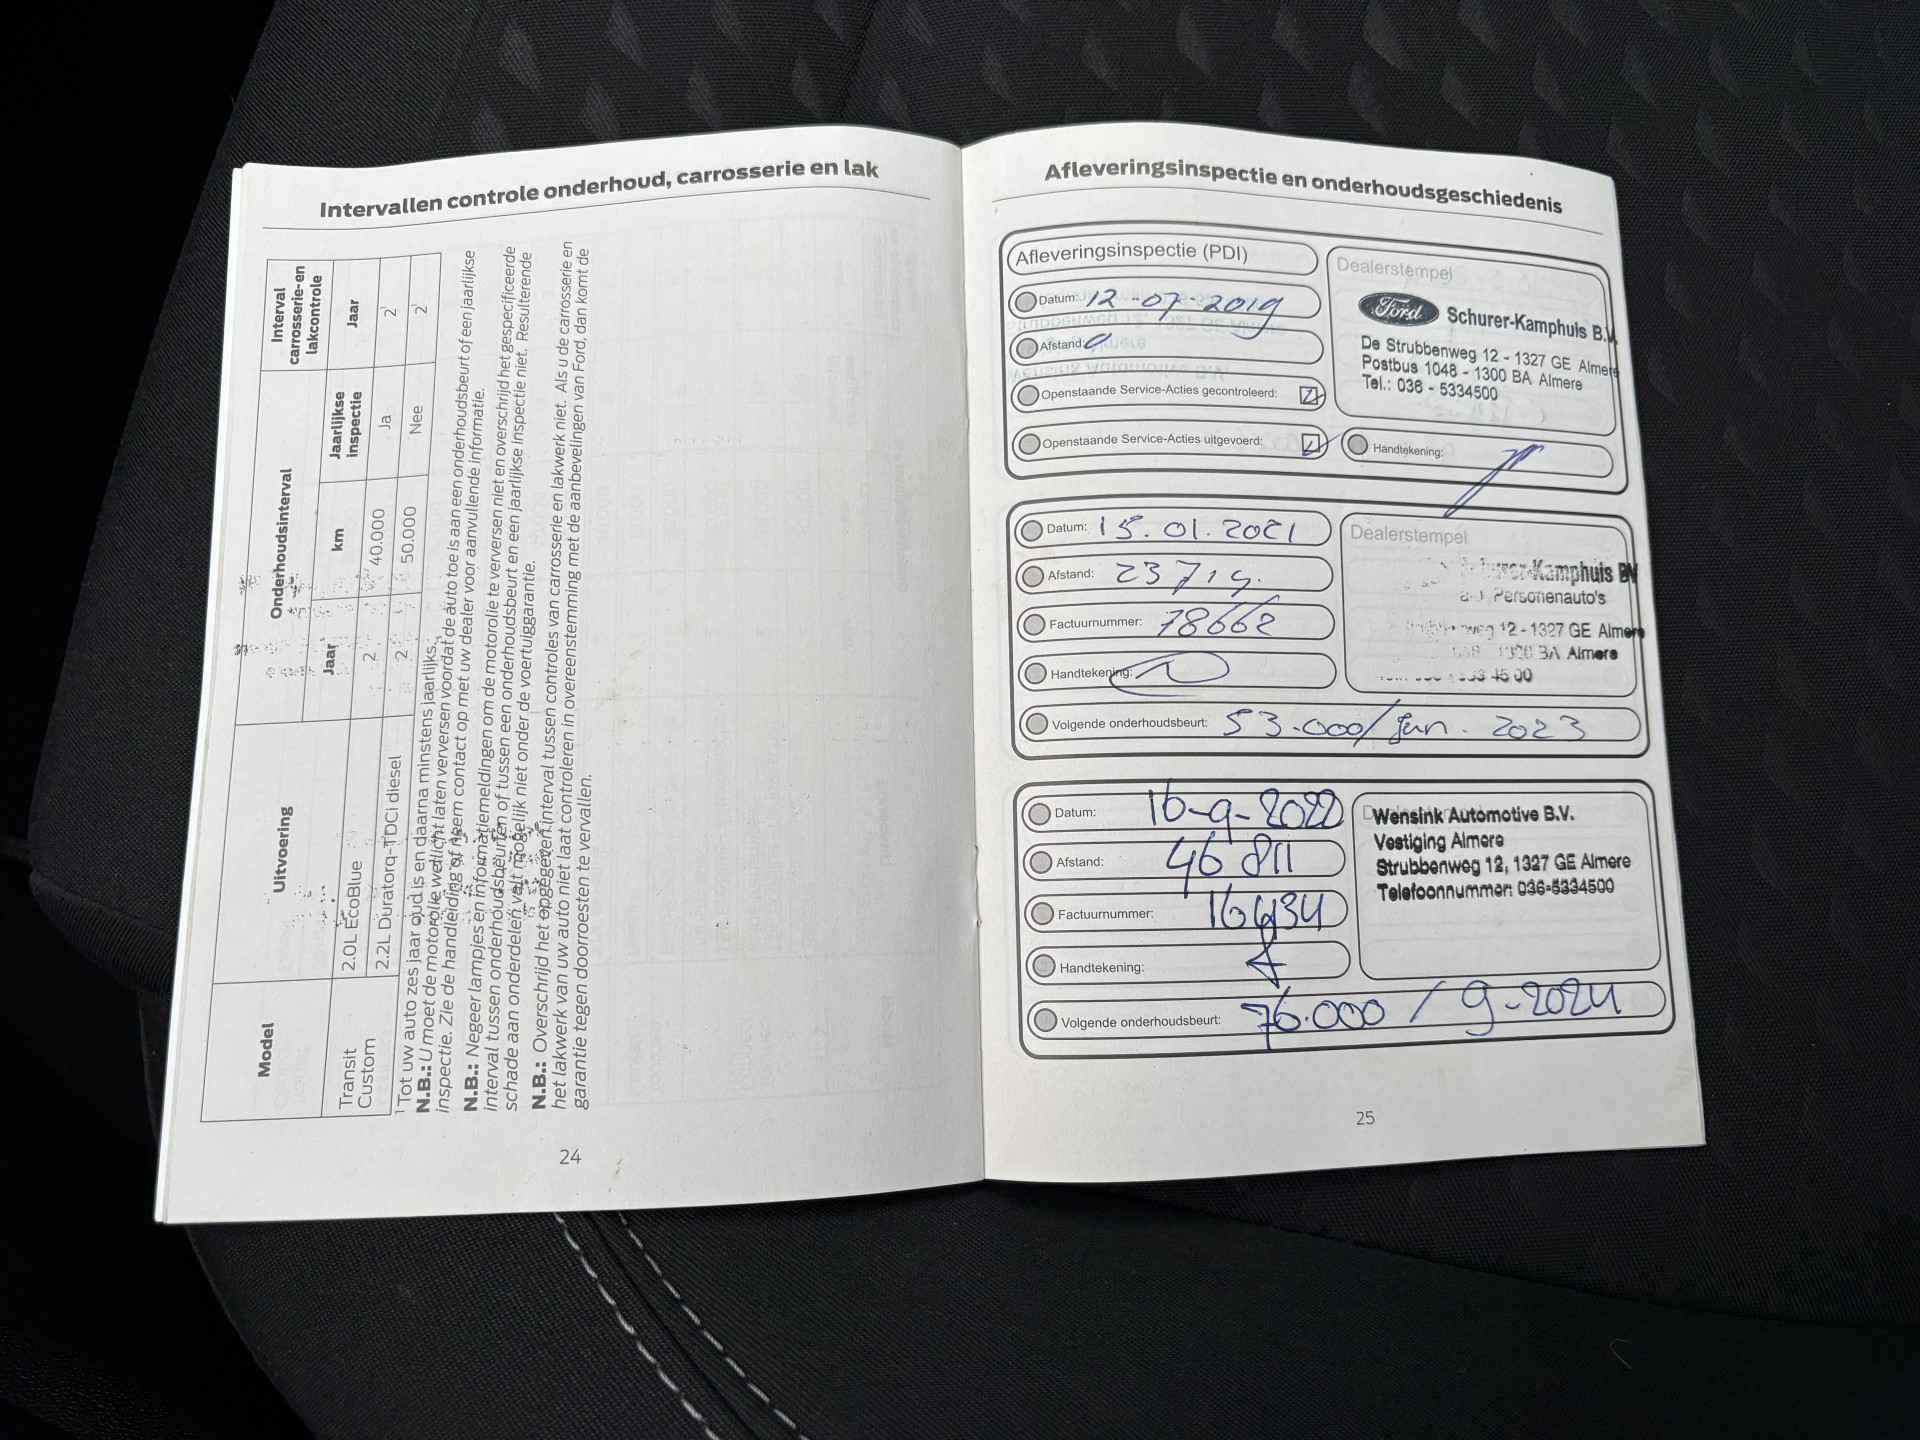 Intervallen controle onderhoud, carrosserie en lak
Model
Uitvoering
Onderhoudsinterval
Interval carrosserie-en lakcontrole
Jaar
km
Jaarlijkse inspectie
Jaar
Transit Custom
2.0L EcoBlue
2
40.000
Ja
2¹
2.2L Duratorq-TDCi diesel
2
50.000
Nee
2¹
¹ Tot uw auto zes jaar oud is en daarna minstens jaarlijks.
N.B.: U moet de motorolie wellicht laten verversen voordat de auto toe is aan een onderhoudsbeurt of een jaarlijkse
inspectie. Zie de handleiding of neem contact op met uw dealer voor aanvullende informatie.
N.B.: Negeer lampjes en informatiemeldingen om de motorolie te verversen niet en overschrijd het gespecificeerde
interval tussen onderhoudsbeurten of tussen een onderhoudsbeurt en een jaarlijkse inspectie niet. Resulterende
schade aan onderdelen valt mogelijk niet onder de voertuiggarantie.
N.B.: Overschrijd het opgegeven interval tussen controles van carrosserie en lakwerk niet. Als u de carrosserie en
het lakwerk van uw auto niet laat controleren in overeenstemming met de aanbevelingen van Ford, dan komt de
garantie tegen doorroesten te vervallen.
24
Afleveringsinspectie en onderhoudsgeschiedenis
Afleveringsinspectie (PDI)
Datum: 12-07-2019
Afstand: 0
Openstaande Service-Acties gecontroleerd:
Openstaande Service-Acties uitgevoerd:
Dealerstempel
Ford Schurer-Kamphuis B.V.
De Strubbenweg 12 - 1327 GE Almere
Postbus 1048 - 1300 BA Almere
Tel.: 036 - 5334500
Handtekening:
Datum: 15.01.2021
Afstand: 23719.
Factuurnummer: 78662
Handtekening:
Dealerstempel
Schurer-Kamphuis BV
Personenauto's
weg 12 - 1327 GE Almere
BA Almere
45 00
Volgende onderhoudsbeurt: 53.000/jan. 2023
Datum: 16-9-2022
Afstand: 46 811
Factuurnummer: 16434
Handtekening:
Wensink Automotive B.V.
Vestiging Almere
Strubbenweg 12, 1327 GE Almere
Telefoonnummer: 036-5334500
Volgende onderhoudsbeurt: 76.000 / 9-2024
25